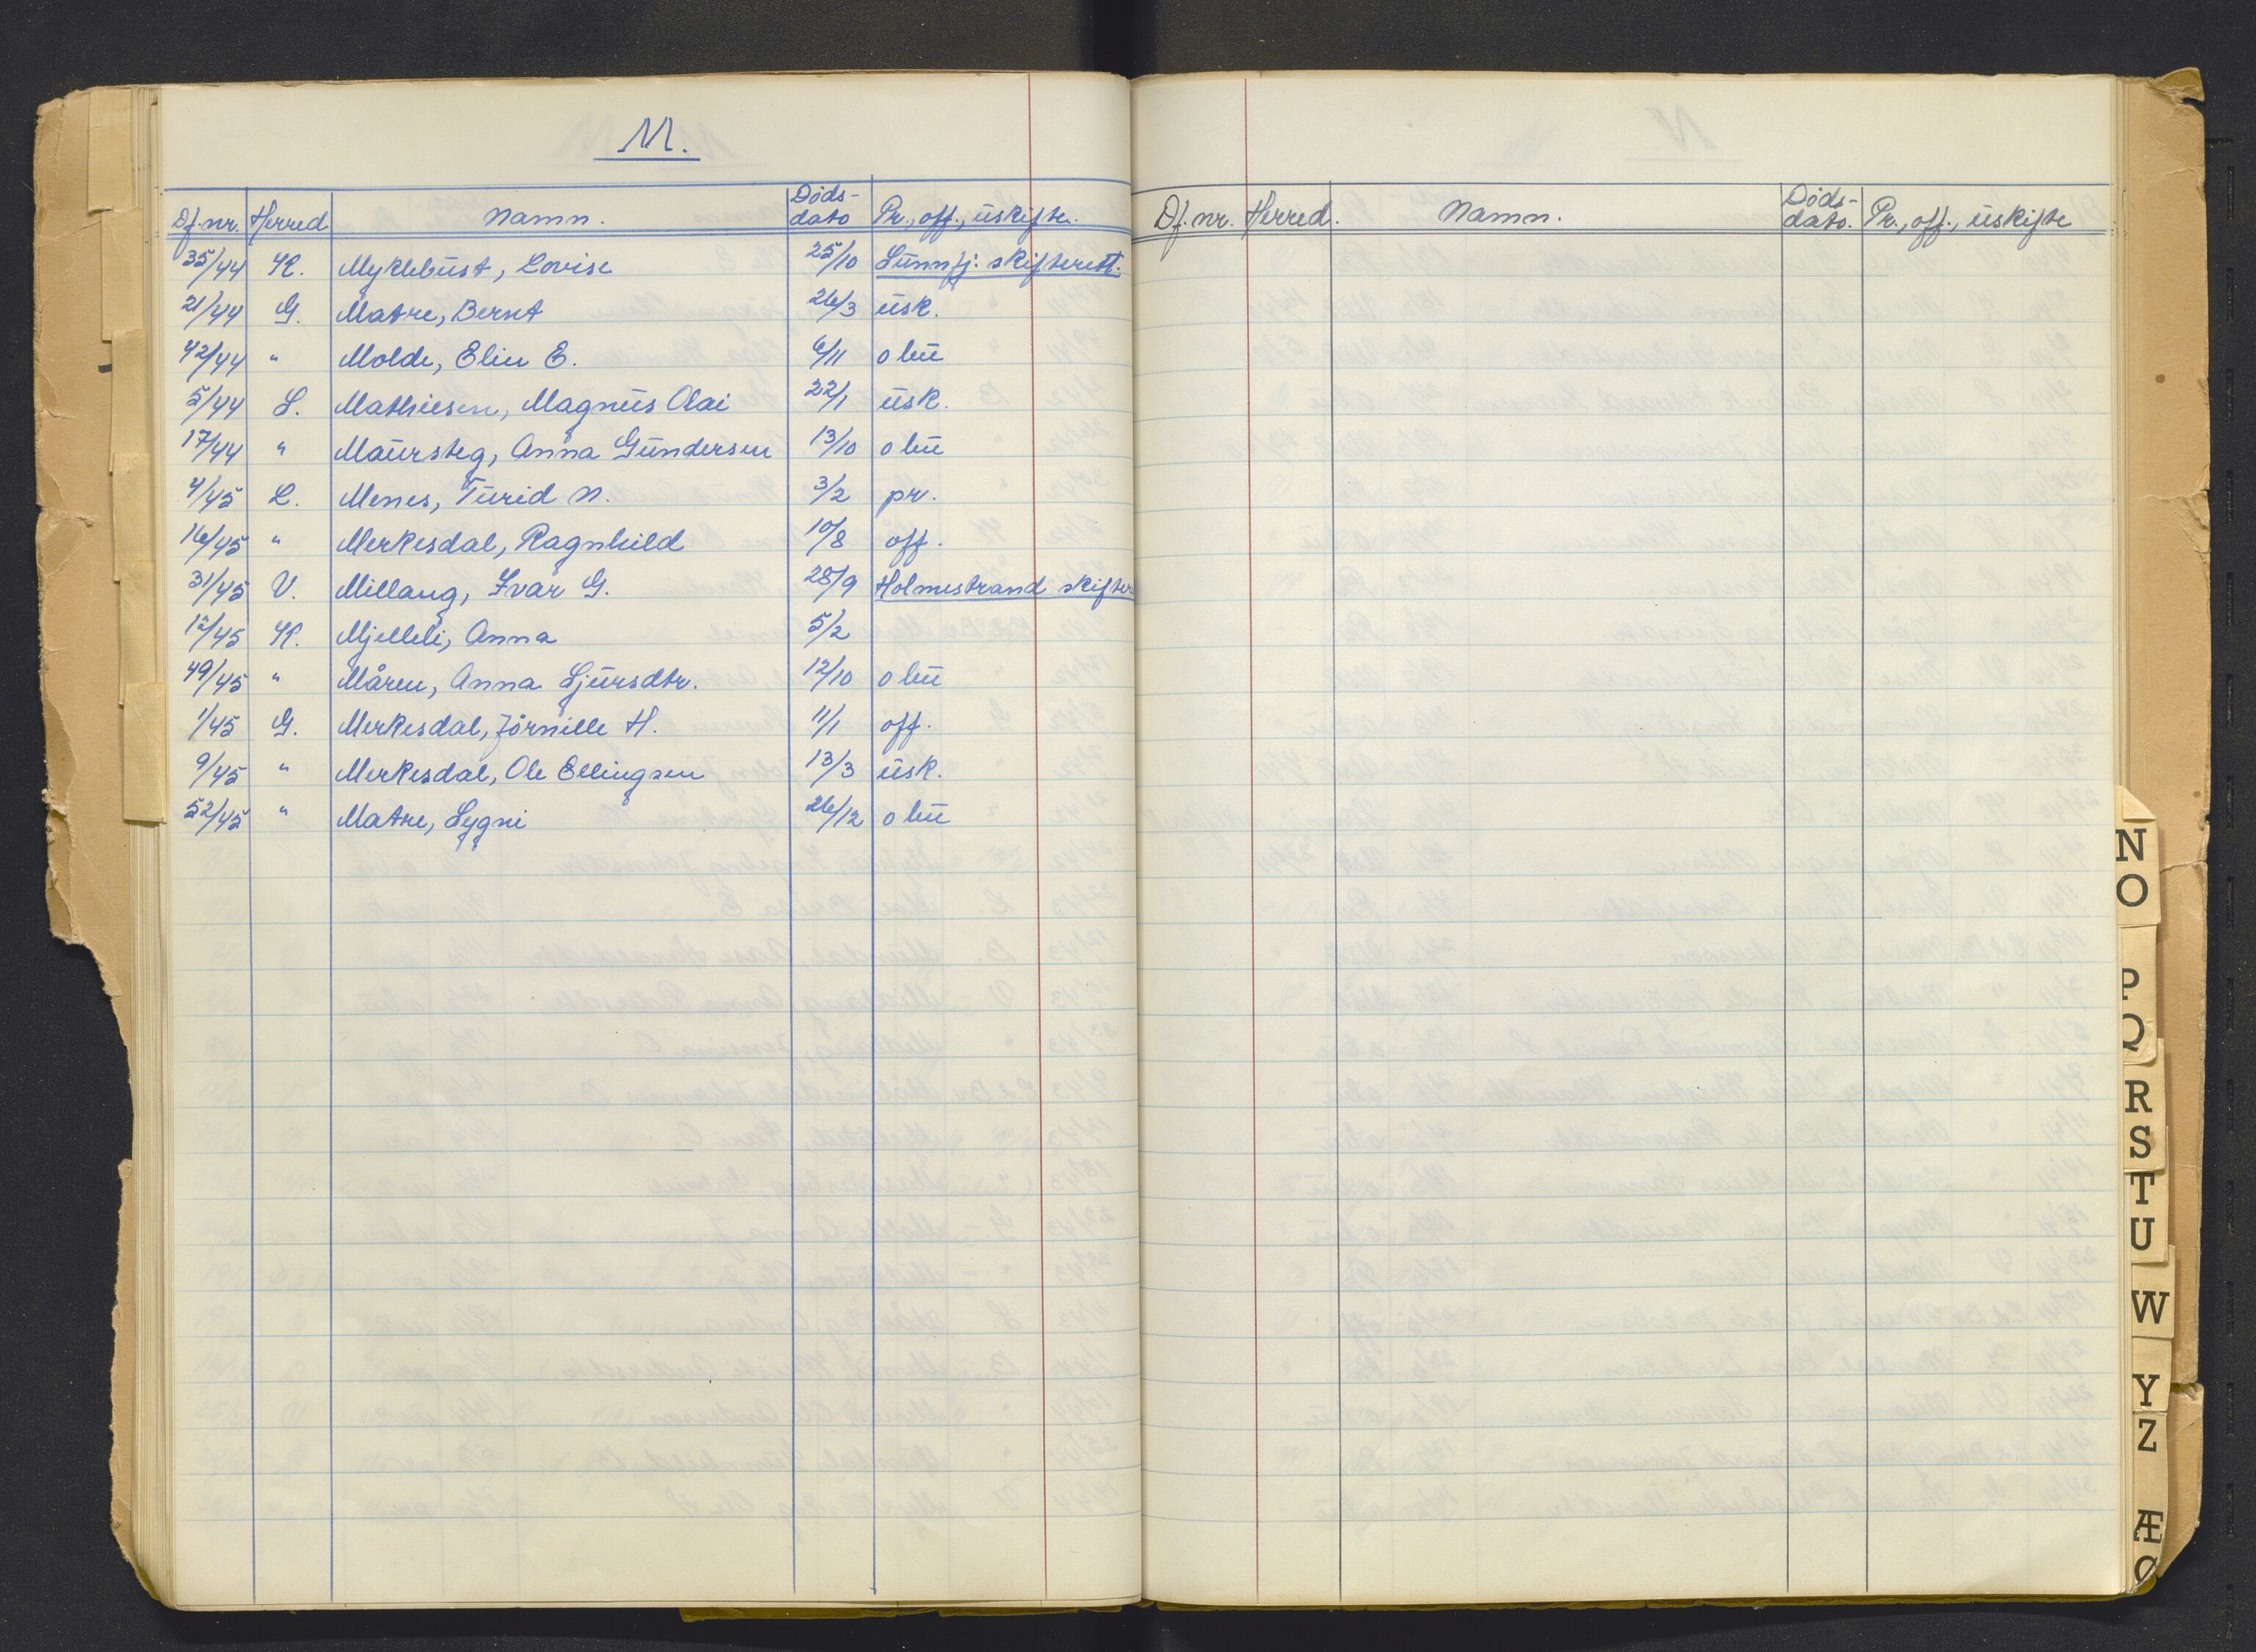 M.
Df.nr. Herred Namn. Døds-dato Pr., off., uskifte.
35/44 K. Myklebust, Lovise 25/10 Sunnfj. skifterett.
21/44 G. Matre, Bernt 26/3 usk.
42/44 " Molde, Elin E. 6/11 o bu
5/44 S. Mathiesen, Magnus Olai 22/1 usk.
17/44 " Maursteg, Anna Gundersen 13/10 o bu
4/45 L. Menes, Turid N. 3/2 pr.
16/45 " Merkesdal, Ragnhild 10/8 off.
31/45 V. Millang, Ivar G. 28/9 Holmestrand skifter
12/45 K. Mjelleli, Anna 5/2
49/45 " Måren, Anna Sjursdtr. 12/10 o bu
1/45 G. Merkesdal, Jørnille H. 11/1 off.
9/45 " Merkesdal, Ole Ellingsen 13/3 usk.
52/45 " Matre, Sygni 26/12 o bu
Df. nr. Herred. Namn. Døds-dato. Pr., off., uskifte
N
O
P
Q
R
S
T
U
W
Y
Z
Æ
Ø